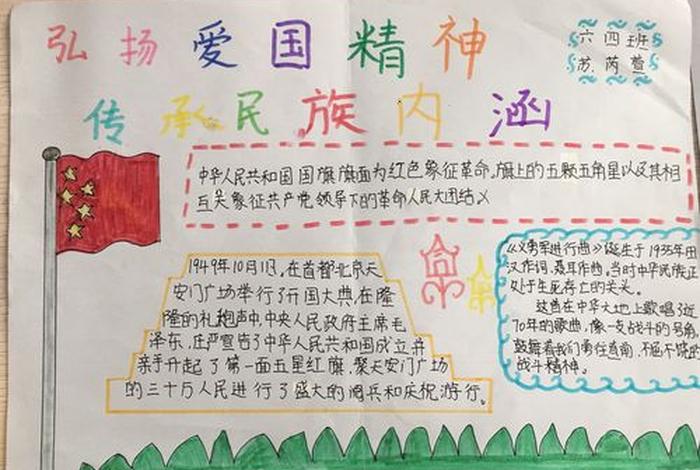 弘扬爱国精神
六四班
苏芮萱
传承民族内涵
中华人民共和国国旗旗面为红色象征革命。旗上的五颗五角星以及其相
互关象征共产党领导下的革命人民大团结义
1949年10月1日,在首都北京天
安门广场举行了开国大典,在隆
隆的礼炮声中,中央人民政府主席毛
泽东,庄严宣告了中华人民共和国成立并
亲手升起了第一面五星红旗。聚天安门广场
的三十万人民进行了盛大的阅兵和庆祝游行。
《义勇军进行曲》诞生于1935年田
汉作词,聂耳作曲,当时中华民族正
处于生死存亡的关头。
这首在中华大地上歌唱了近
70年的歌曲,像一支战斗的号角
鼓舞着我们勇往直前,不屈不挠
战斗精神。